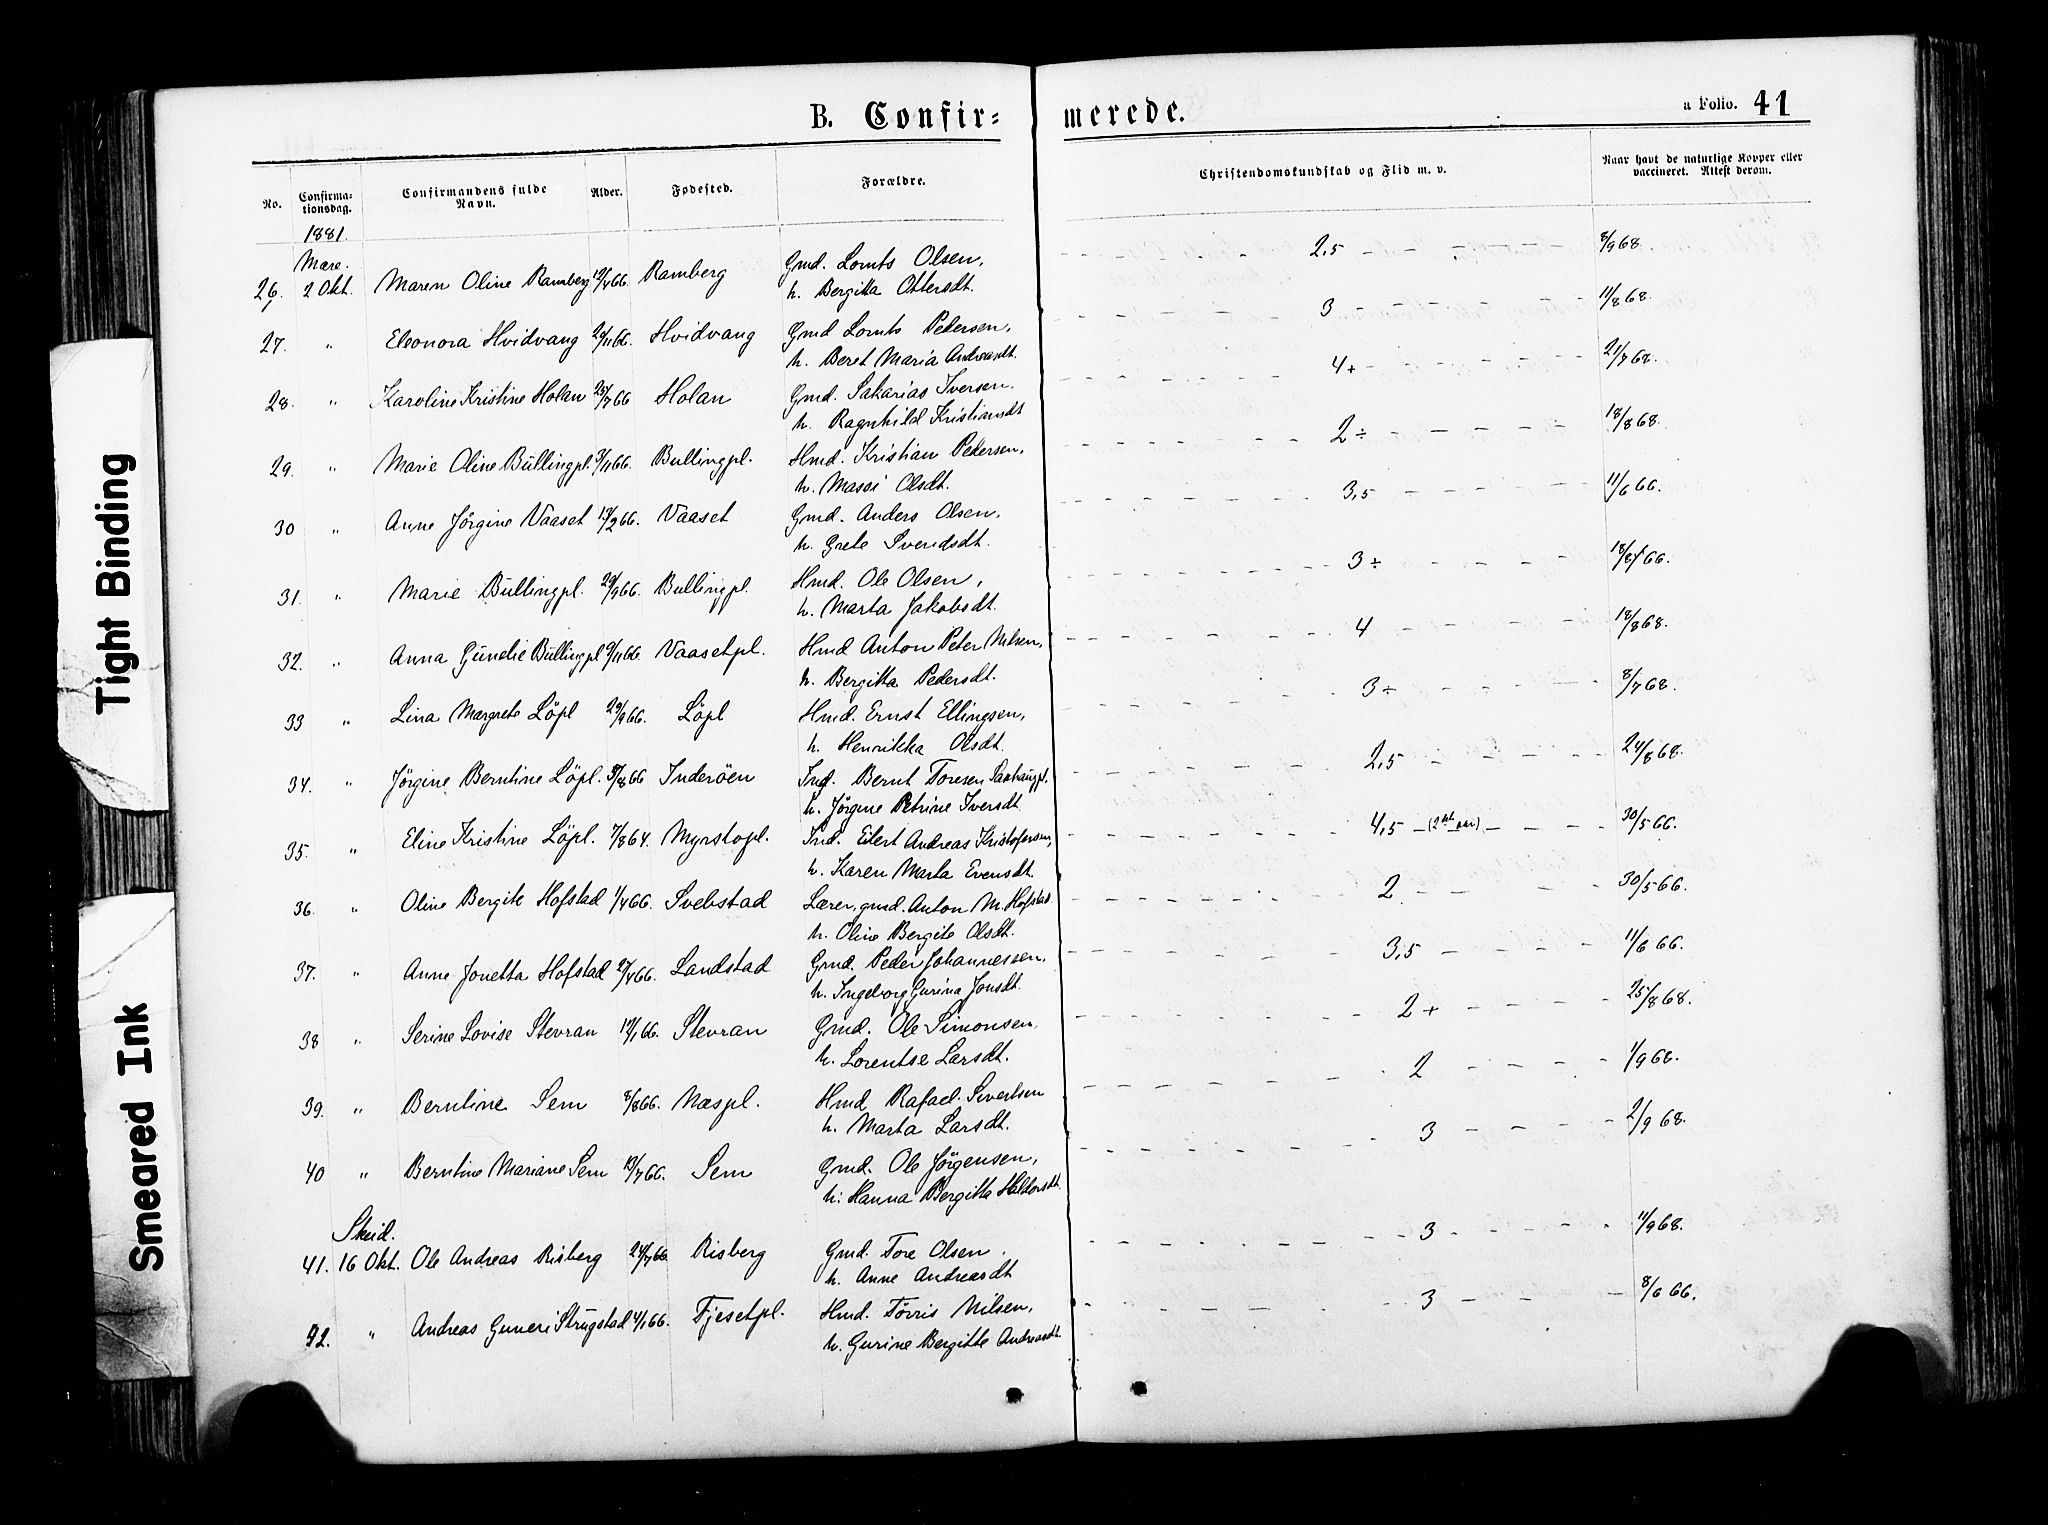 B. Confir-
merede.
a Folio. 41
No.
Confirma-
tionsdag.
Confirmandens fulde
Navn.
Alder.
Fødested.
Forældre.
Christendomskundskab og Flid m. v.
Naar havt de naturlige Kopper eller
vaccineret. Attest derom.
1881.
Mære.
26. 2 Okt. Maren Oline Ramberg 466. Ramberg Gmd. Lornts Olsen, 2,5 8/9 68.
h. Bergitta Ottersdt.
27. " Eleonora Hvidvang 1166. Hvidvang Gmd Lornts Pedersen, 3 11/8 68.
h. Beret Maria Andreasdt.
28. " Karoline Kristine Holan 25/7 66 Holan Gmd. Sakarias Iversen, 4+ 21/7 68.
h. Ragnhild Kristiansdt
29. " Marie Oline Büllingpl. 3/11 66. Bullingpl. Hmd. Kristian Pedersen, 2÷ 18/8 68.
h. Masei Olsdt.
30 " Anne Jörgine Vaaset 266. Vaaset Gmd. Anders Olsen, 3,5 11/6 66.
h. Grete Svendsdt.
31. " Marie Büllingpl. 29/9 66. Bullingpl. Hmd. Ole Olsen, 3÷ 18/8 66.
h. Marta Jakobsdt.
32. " Anna Gunelie Büllingpl 9/11 66. Vaasetpl. Hmd Anton Peter Nilsen, 4 18/8 68.
h. Bergitta Pedersdt.
33 " Lina Margrete Löpl 29/9 66. Löpl Hmd. Ernst Ellingsen, 3÷ 8/7 68.
h. Henrikka Olsdt.
34. " Jörgine Berntine Löpl. 31/8 66 Inderöen Ind. Bernt Toresen Saxhaugpl. 2,5 24/8 68.
h. Jörgine Petrine Iversdt.
35. " Eline Kristine Löpl. 7/8 64. Myrstopl. Ind. Eilert Andreas Kristofersen, 4,5 (2det aar) 30/5 66.
h. Karen Marta Evensdt.
36. " Oline Bergite Hofstad 1/4 66. Svebstad Lærer, gmd. Anton M. Hofstad 2 30/5 66.
h. Oline Bergite Olsdt.
37. " Anne Jonetta Hofstad 27/4 66. Landstad Gmd. Peder Johannessen, 3,5 11/6 66.
h. Ingeborg Gurina Jonsdt.
38 " Serine Lovise Stevran 12/1 66. Stevran Gmd. Ole Simonsen, 2+ 25/8 68.
h. Lorentse Larsdt.
39. " Berntine Sem 8/8 66. Næspl. Hmd Rafael Sivertsen 2 1/9 68.
h. Marta Larsdt.
40 " Berntine Mariane Sem 19/7 66. Sem Gmd. Ole Jörgensen, 3 2/9 68.
h. Hanna Bergitta Haldorsdt.
Skeid.
41. 16 Okt. Ole Andreas Risberg 24/7 66 Risberg Gmd. Tore Olsen. 3 11/9 68.
h. Anne Andreasdt
42. " Andreas Guneri Strugstad 4/1 66. Fjesetpl. Hmd. Törris Nilsen, 3 8/6 66.
h. Gurine Bergitte Andreasdt.
Tight Binding
Smeared Ink